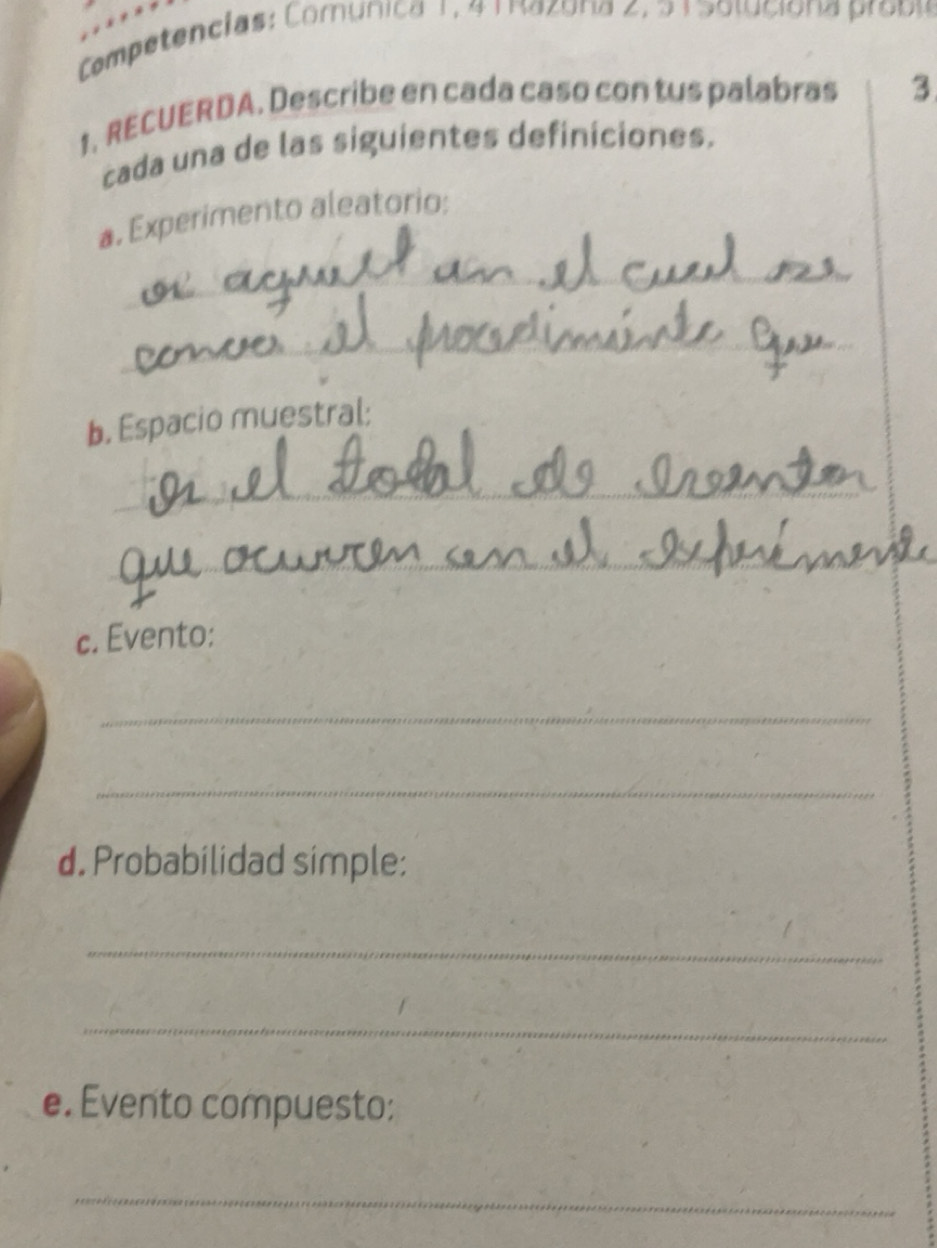 Competencias: Comunica 1, 4 | Razona 2, 5 | Soluciona proble
1. RECUERDA. Describe en cada caso con tus palabras
cada una de las siguientes definiciones.
3.
a. Experimento aleatorio:
es aquel en el cual se
conoce el procedimiento que
b. Espacio muestral:
es el total de eventos
que ocurren en el experimento
c. Evento:
d. Probabilidad simple:
e. Evento compuesto: